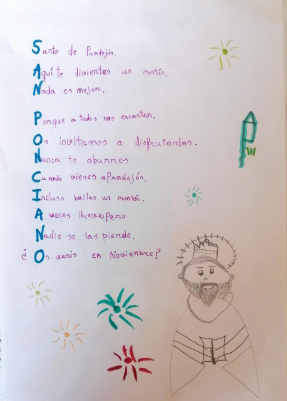 Santo de Pradejón,
Aquí te diviertes un montón,
Nada es mejor.
Porque a todos nos encantan.
Os invitamos a disfrutarlas.
Nunca te aburres
Cuando vienes a Pradejón,
Incluso bailas un montón.
A veces llueve, pero
Nadie se las pierde.
¿Os venís en Noviembre?